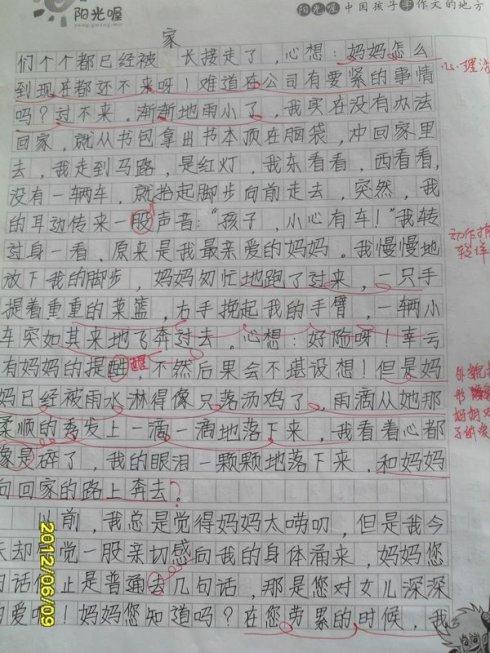 阳光喔
阳光喔中国孩子学作文的地方
家
们个个都已经被 长接走了，心想：妈妈怎么
到现在都还不来呀！难道在公司有要紧的事情
吗？过不来。渐渐地雨小了，我实在没有办法
回家，就从书包拿出书本顶在脑袋，冲回家里
去，我走到马路，是红灯，我东看看，西看看，
没有一辆车，就抬起脚步向前走去，突然，我
的耳边传来一股声音：“孩子，小心有车！”我转
过身一看，原来是我最亲爱的妈妈。我慢慢地
放下我的脚步，妈妈匆忙地跑了过来，一只手
提着重重的菜篮，右手挽起我的手臂，一辆小
车突如其来地飞奔过去。心想：好险呀！幸亏
有妈妈的提醒，不然后果会不堪设想！但是妈
妈已经被雨水淋得像只落汤鸡了，雨滴从她那
柔顺的秀发上一滴一滴地落下来，我看着心都
像是碎了，我的眼泪一颗颗地落下来，和妈妈
向回家的路上奔去。
以前，我总是觉得妈妈太唠叨，但是我今
天却感觉一股亲切感向我的身体涌来，妈妈您
的话何止是普通去几句话，那是您对女儿深深
的爱呀！妈妈您知道吗？在您劳累的时候，我
心理活
醒
2012/06/09